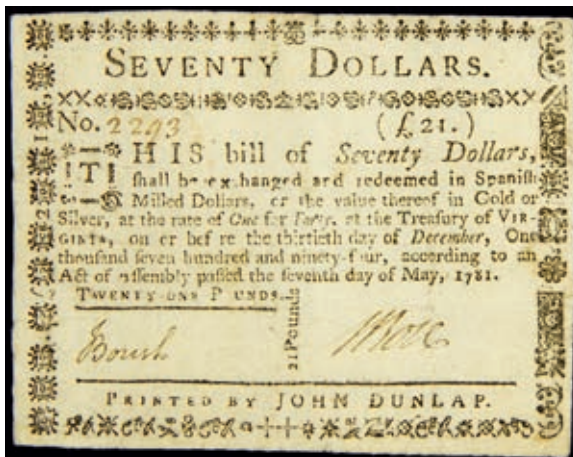 SEVENTY DOLLARS.
No. 2293 (£21.)
THIS bill of Seventy Dollars,
shall be exchanged and redeemed in Spanish
Milled Dollars, or the value thereof in Gold or
Silver, at the rate of One for Forty, at the Treasury of VIR-
GINIA, on or before the thirtieth day of December, One
thousand seven hundred and ninety-four, according to an
Act of assembly passed the seventh day of May, 1781.
TWENTY-ONE POUNDS.
21 Pounds
PRINTED BY JOHN DUNLAP.